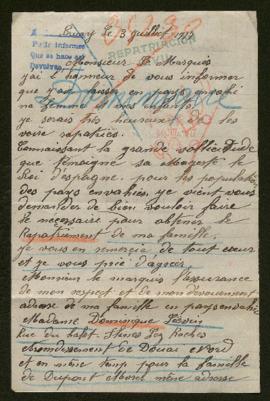 le 3 juillet 1917
REPATRIACION
A
Pedir informes
Que se hace
Devolver
Monsieur le Marquis
j'ai l'honneur de vous informer
que j'ai laissé en pays envahi
ma femme et mes enfants
je serais très heureux de les
voire rapatriés.
Connaissant la grande sollicitude
que témoigne sa Majesté le
Roi d'espagne pour les populations
des pays envahies, je vient vous
demander de bien vouloir faire
le necessaire pour obtenir le
Rapatriement de ma famille.
je vous en remercie de tout coeur
et je vous prie d'agréer
Monsieur le marquis l'assurance
de mon respect et de mon devouement
adresse de ma famille en pays envahie
Madame Dominique
Rue du Flines lez Raches
Arrondissement de Douai Nord
et en même temp pour la famille
de Dupont même adresse